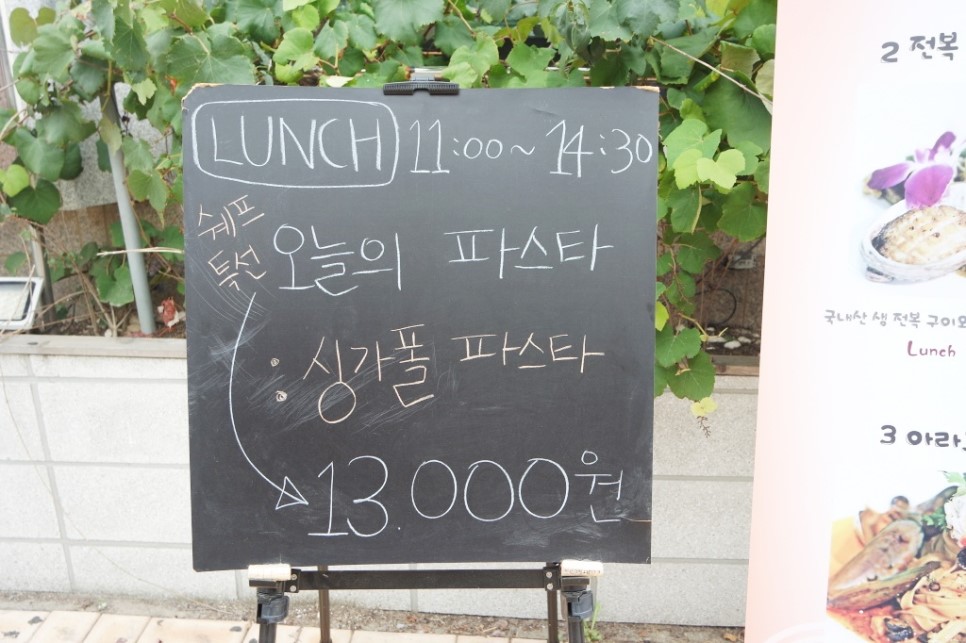 LUNCH 11:00~ 14:30
쉐프
특선
오늘의 파스타
: 싱가폴 파스타
13.000원
2 전복
국내산 생 전복 구이와
Lunch
3 아라